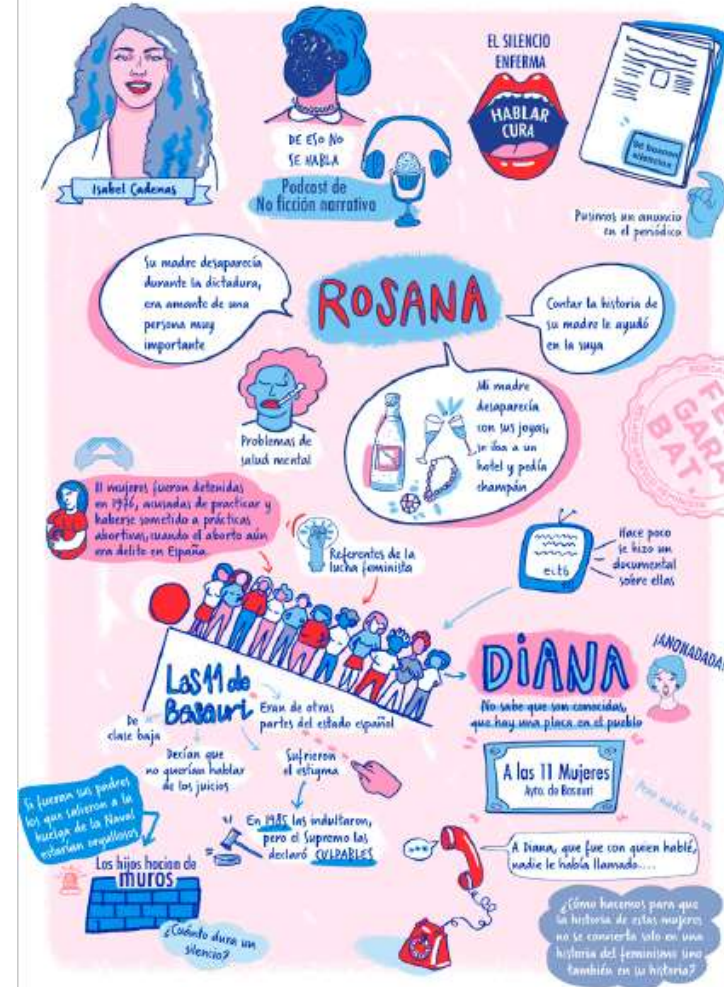 Isabel Cadenas
DE ESO NO
SE HABLA
Podcast de
No ficción narrativa
EL SILENCIO
ENFERMA
HABLAR
CURA
Pusimos un anuncio
en el periódico
Su madre desaparecía
durante la dictadura,
era amante de una
persona muy
importante
ROSANA
Contar la historia de
su madre le ayudó
en la suya
Problemas de
salud mental
Mi madre
desaparecía
con sus joyas,
se iba a un
hotel y pedía
champán
11 mujeres fueron detenidas
en 1976, acusadas de practicar y
haberse sometido a prácticas
abortivas, cuando el aborto aún
era delito en España.
Referentes de la
lucha feminista
eitb
Hace poco
se hizo un
documental
sobre ellas
Las 11 de
Basauri
De
clase baja
Eran de otras
partes del estado español
Decían que
no querían hablar
de los juicios
Sufrieron
el estigma
En 1985 las indultaron,
pero el Supremo las
declaró CULPABLES
DIANA
¡ANONADADA!
No sabe que son conocidas,
que hay una placa en el pueblo
A las 11 Mujeres
Ayto. de Basauri
Pero nadie la
Si fueran sus padres
los que salieron a la
huelga de la Naval
estarían orgullosos
Los hijos hacían de
muros
¿Cuánto dura un
silencio?
A Diana, que fue con quien hablé,
nadie le había llamado....
¿Cómo hacemos para que
la historia de estas mujeres
no se convierta solo en una
historia del feminismo sino
también en su historia?